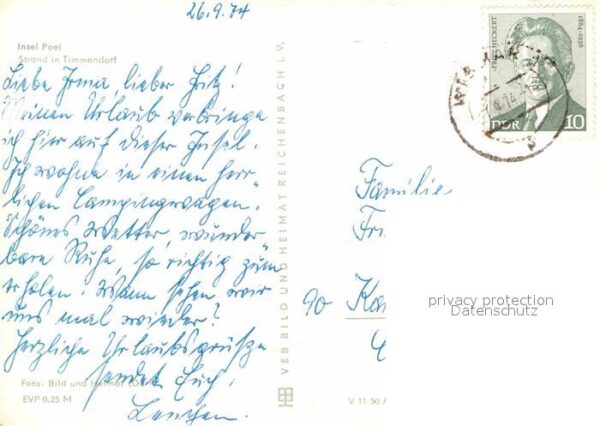 26.9.74
Insel Poel
Strand in Timmendorf
Liebe Irma, lieber Fritz!
Meinen Urlaub verbringe
ich hier auf dieser Insel.
Ich wohne in einen herr-
lichen Campingwagen.
Schönes Wetter, wunder-
bare Ruhe, so richtig zum
erholen. Wann sehen wir
uns mal wieder?
Herzliche Urlaubsgrüße
sendet Euch,
Lenchen.
Foto: Bild und Heimat
EVP 0,25 M
VEB BILD UND HEIMAT REICHENBACH I. V.
V 11 50
FRITZ HECKERT
1884-1936
DDR
10
WISMAR
Familie
Fri
90 Ka
privacy protection
Datenschutz